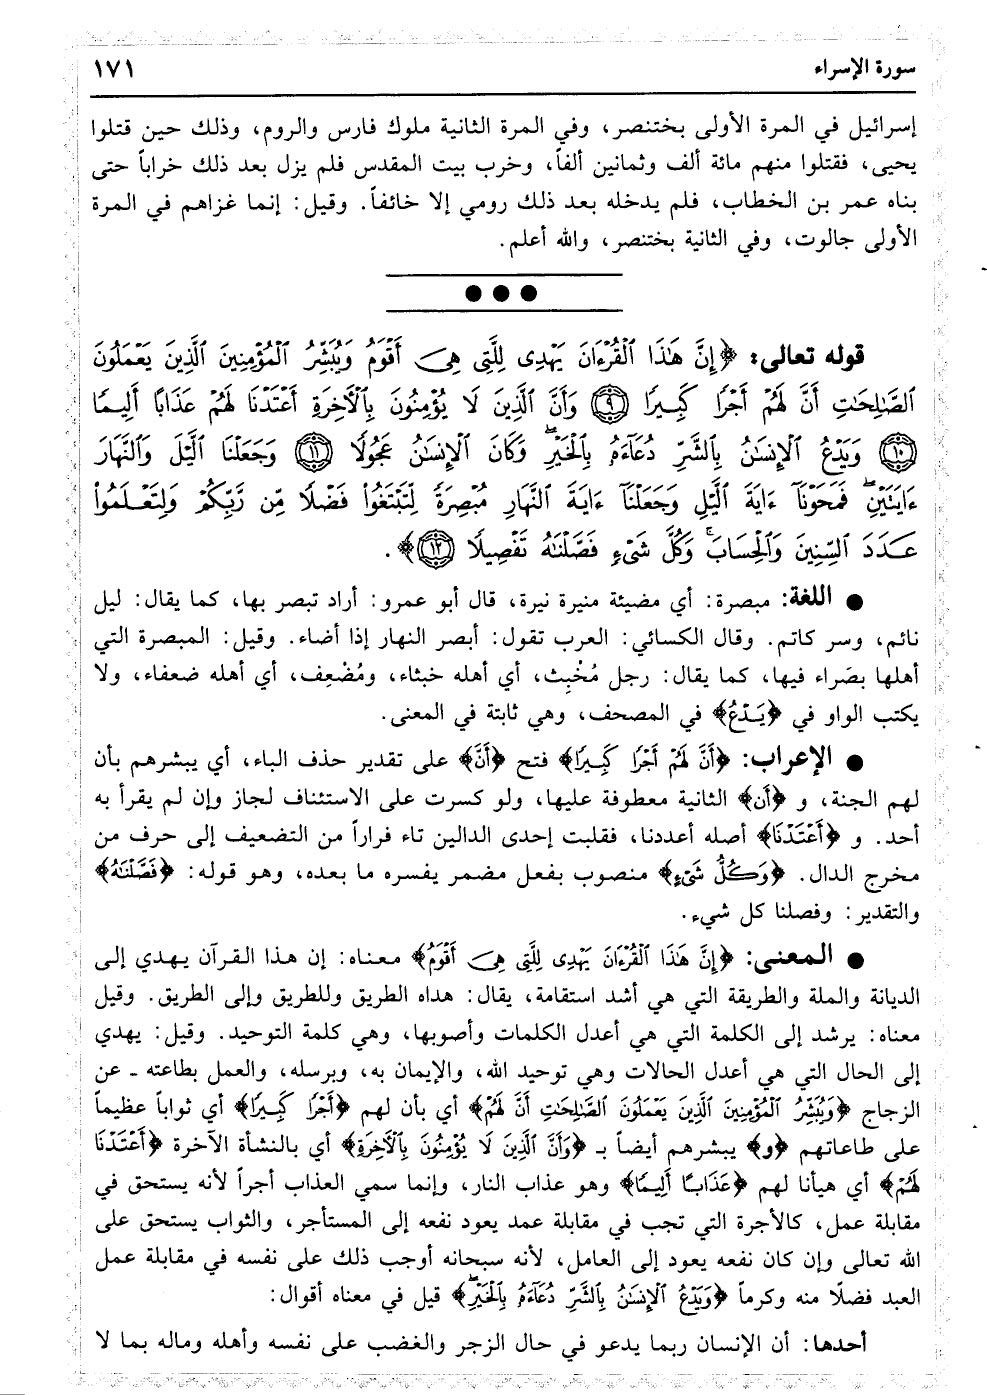 سورة الإسراء ١٧١
إسرائيل في المرة الأولى بختنصر، وفي المرة الثانية ملوك فارس والروم، وذلك حين قتلوا
يحيى، فقتلوا منهم مائة ألف وثمانين ألفاً، وخرب بيت المقدس فلم يزل بعد ذلك خراباً حتى
بناه عمر بن الخطاب، فلم يدخله بعد ذلك رومي إلا خائفاً. وقيل: إنما غزاهم في المرة
الأولى جالوت، وفي الثانية بختنصر، والله أعلم.
قوله تعالى: ﴿إِنَّ هَٰذَا الْقُرْءَانَ يَهْدِى لِلَّتِى هِىَ أَقْوَمُ وَيُبَشِّرُ الْمُؤْمِنِينَ الَّذِينَ يَعْمَلُونَ
الصَّٰلِحَٰتِ أَنَّ لَهُمْ أَجْرًا كَبِيرًا ﴿٩﴾ وَأَنَّ الَّذِينَ لَا يُؤْمِنُونَ بِالْأَخِرَةِ أَعْتَدْنَا لَهُمْ عَذَابًا أَلِيمًا
﴿١٠﴾ وَيَدْعُ الْإِنسَٰنُ بِالشَّرِّ دُعَآءَهُ بِالْخَيْرِ ۖ وَكَانَ الْإِنسَٰنُ عَجُولًا ﴿١١﴾ وَجَعَلْنَا الَّيْلَ وَالنَّهَارَ
ءَايَتَيْنِ ۖ فَمَحَوْنَآ ءَايَةَ الَّيْلِ وَجَعَلْنَآ ءَايَةَ النَّهَارِ مُبْصِرَةً لِّتَبْتَغُوا۟ فَضْلًا مِّن رَّبِّكُمْ وَلِتَعْلَمُوا۟
عَدَدَ السِّنِينَ وَالْحِسَابَ ۚ وَكُلَّ شَىْءٍ فَصَّلْنَٰهُ تَفْصِيلًا ﴿١٢﴾﴾.
● اللغة: مبصرة: أي مضيئة منيرة نيرة، قال أبو عمرو: أراد تبصر بها، كما يقال: ليل
نائم، وسر كاتم. وقال الكسائي: العرب تقول: أبصر النهار إذا أضاء. وقيل: المبصرة التي
أهلها بصَراء فيها، كما يقال: رجل مُخْبِث، أي أهله خبثاء، ومُضْعِف، أي أهله ضعفاء، ولا
يكتب الواو في ﴿يَدْعُ﴾ في المصحف، وهي ثابتة في المعنى.
● الإعراب: ﴿أَنَّ لَهُمْ أَجْرًا كَبِيرًا﴾ فتح ﴿أَنَّ﴾ على تقدير حذف الباء، أي يبشرهم بأن
لهم الجنة، و ﴿أن﴾ الثانية معطوفة عليها، ولو كسرت على الاستئناف لجاز وإن لم يقرأ به
أحد. و ﴿أَعْتَدْنَا﴾ أصله أعددنا، فقلبت إحدى الدالين تاء فراراً من التضعيف إلى حرف من
مخرج الدال. ﴿وَكُلُّ شَىْءٍ﴾ منصوب بفعل مضمر يفسره ما بعده، وهو قوله: ﴿فَصَّلْنَٰهُ﴾
والتقدير: وفصلنا كل شيء.
● المعنى: ﴿إِنَّ هَٰذَا الْقُرْءَانَ يَهْدِى لِلَّتِى هِىَ أَقْوَمُ﴾ معناه: إن هذا القرآن يهدي إلى
الديانة والملة والطريقة التي هي أشد استقامة، يقال: هداه الطريق وللطريق وإلى الطريق. وقيل
معناه: يرشد إلى الكلمة التي هي أعدل الكلمات وأصوبها، وهي كلمة التوحيد. وقيل: يهدي
إلى الحال التي هي أعدل الحالات وهي توحيد الله، والإيمان به، وبرسله، والعمل بطاعته ـ عن
الزجاج ﴿وَيُبَشِّرُ الْمُؤْمِنِينَ الَّذِينَ يَعْمَلُونَ الصَّٰلِحَٰتِ أَنَّ لَهُمْ﴾ أي بأن لهم ﴿أَجْرًا كَبِيرًا﴾ أي ثواباً عظيماً
على طاعاتهم ﴿و﴾ يبشرهم أيضاً بـ ﴿وَأَنَّ الَّذِينَ لَا يُؤْمِنُونَ بِالْأَخِرَةِ﴾ أي بالنشأة الآخرة ﴿أَعْتَدْنَا
لَهُمْ﴾ أي هيأنا لهم ﴿عَذَابًا أَلِيمًا﴾ وهو عذاب النار، وإنما سمي العذاب أجراً لأنه يستحق في
مقابلة عمل، كالأجرة التي تجب في مقابلة عمد يعود نفعه إلى المستأجر، والثواب يستحق على
الله تعالى وإن كان نفعه يعود إلى العامل، لأنه سبحانه أوجب ذلك على نفسه في مقابلة عمل
العبد فضلًا منه وكرماً ﴿وَيَدْعُ الْإِنسَٰنُ بِالشَّرِّ دُعَآءَهُ بِالْخَيْرِ ۖ﴾ قيل في معناه أقوال:
أحدها: أن الإنسان ربما يدعو في حال الزجر والغضب على نفسه وأهله وماله بما لا